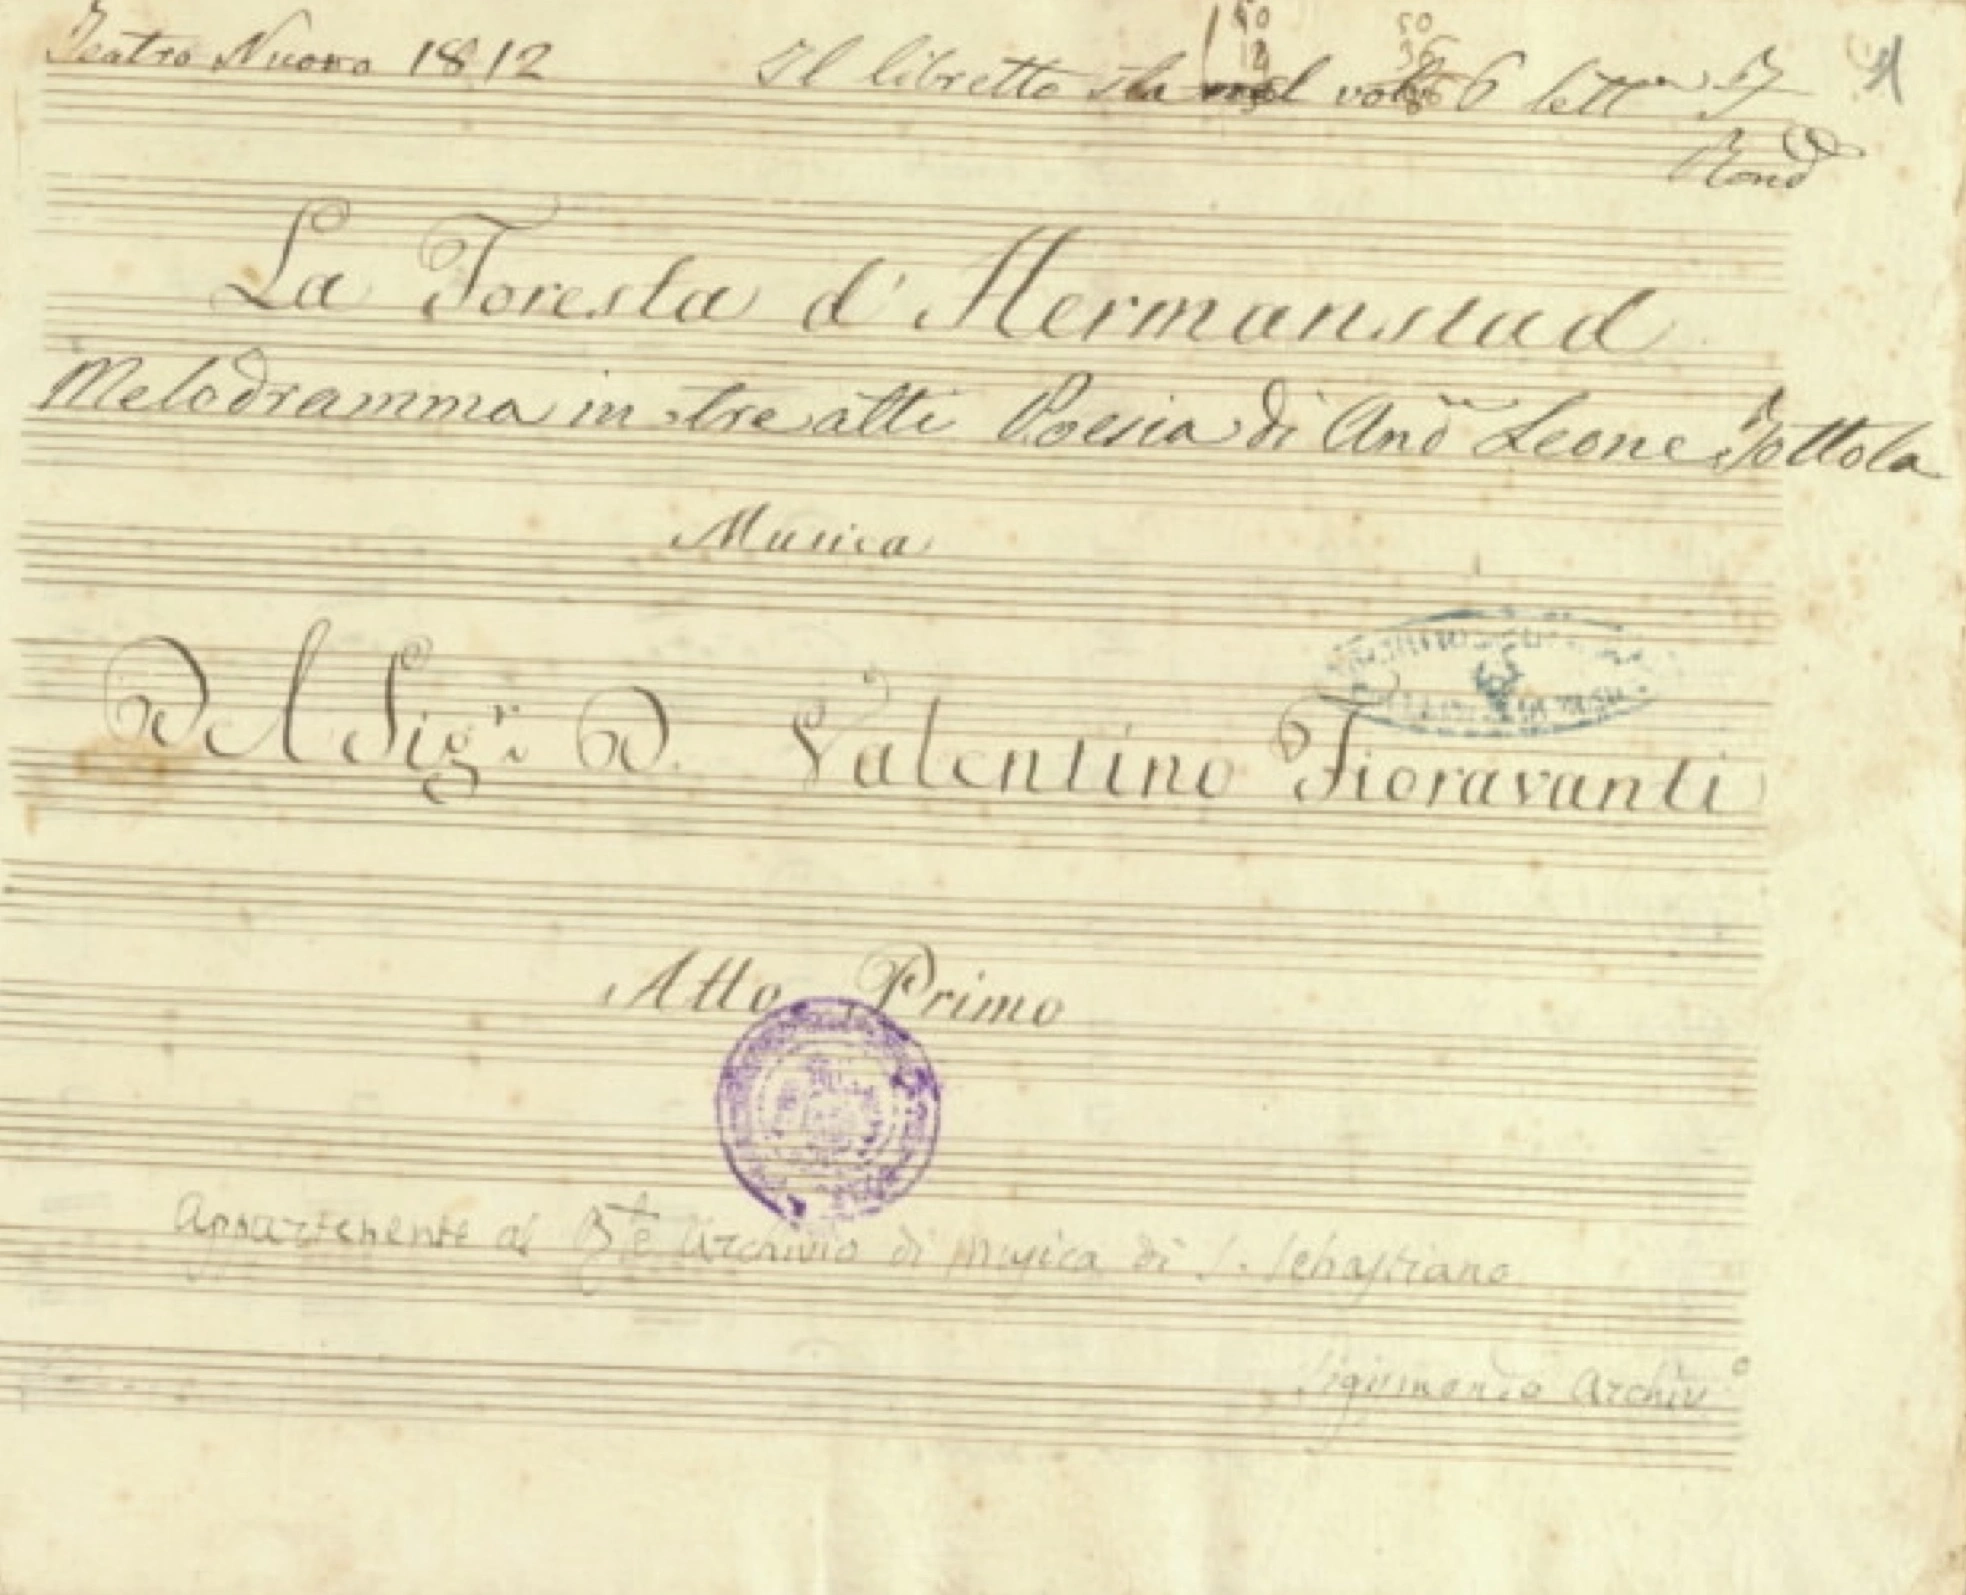 Teatro Nuovo 1812 Il libretto sta nel vol 6 lett T
Rond
1
La Foresta d'Hermanstad
Melodramma in tre atti Poesia di And Leone Tottola
Musica
Del Sig.r D. Valentino Fioravanti
Atto Primo
Appartenente al archivio di musica di S. Sebastiano
Sigismondo Archiv.o